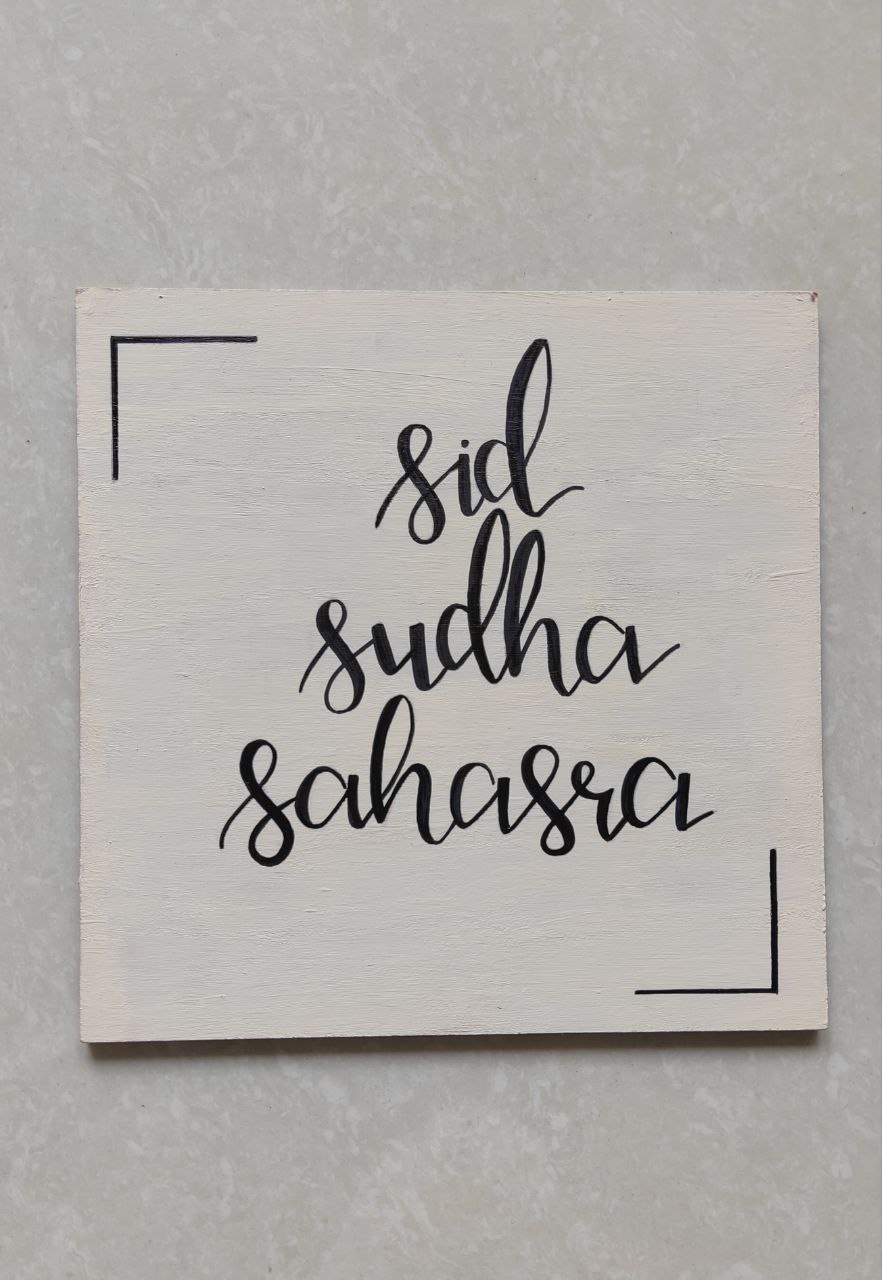 sid
sudha
sahasra